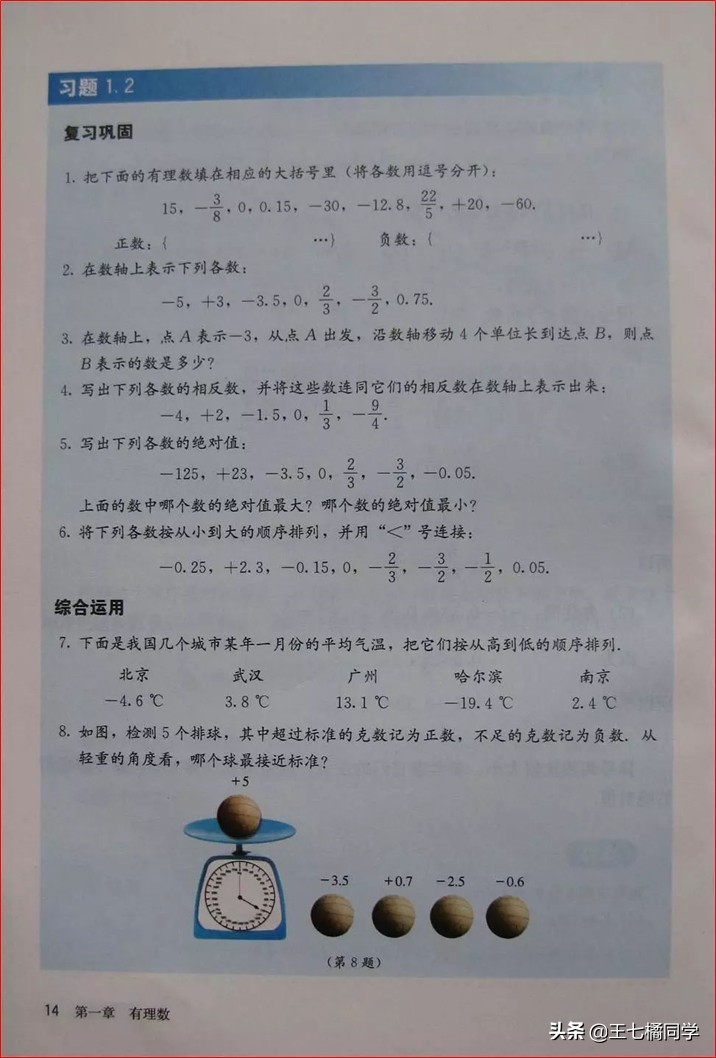 习题 1.2
复习巩固
1. 把下面的有理数填在相应的大括号里（将各数用逗号分开）：
15，-3/8，0，0.15，-30，-12.8，22/5，+20，-60.
正数：{ …} 负数：{ …}
2. 在数轴上表示下列各数：
-5，+3，-3.5，0，2/3，-3/2，0.75.
3. 在数轴上，点 A 表示-3，从点 A 出发，沿数轴移动 4 个单位长到达点 B，则点
B 表示的数是多少？
4. 写出下列各数的相反数，并将这些数连同它们的相反数在数轴上表示出来：
-4，+2，-1.5，0，1/3，-9/4.
5. 写出下列各数的绝对值：
-125，+23，-3.5，0，2/3，-3/2，-0.05.
上面的数中哪个数的绝对值最大？哪个数的绝对值最小？
6. 将下列各数按从小到大的顺序排列，并用“<”号连接：
-0.25，+2.3，-0.15，0，-2/3，-3/2，-1/2，0.05.
综合运用
7. 下面是我国几个城市某年一月份的平均气温，把它们按从高到低的顺序排列.
北京 武汉 广州 哈尔滨 南京
-4.6 ℃ 3.8 ℃ 13.1 ℃ -19.4 ℃ 2.4 ℃
8. 如图，检测 5 个排球，其中超过标准的克数记为正数，不足的克数记为负数. 从
轻重的角度看，哪个球最接近标准？
+5
-3.5 +0.7 -2.5 -0.6
（第 8 题）
14 第一章 有理数
头条 @王七橘同学